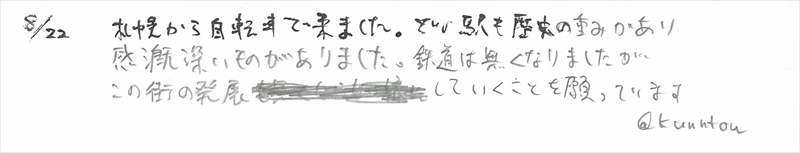 8/22 札幌から自転車で来ました。どの駅も歴史の重みがあり
感慨深いものがありました。鉄道は無くなりましたが
この街の発展していくことを願っています
@kunntou